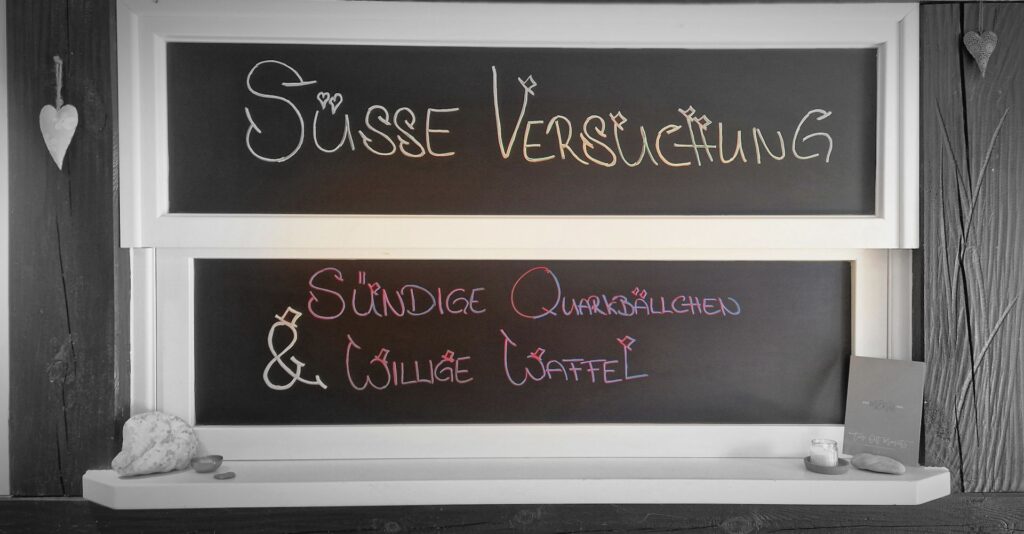 SÜSSE VERSUCHUNG
SÜNDIGE QUARKBÄLLCHEN
& WILLIGE WAFFEL